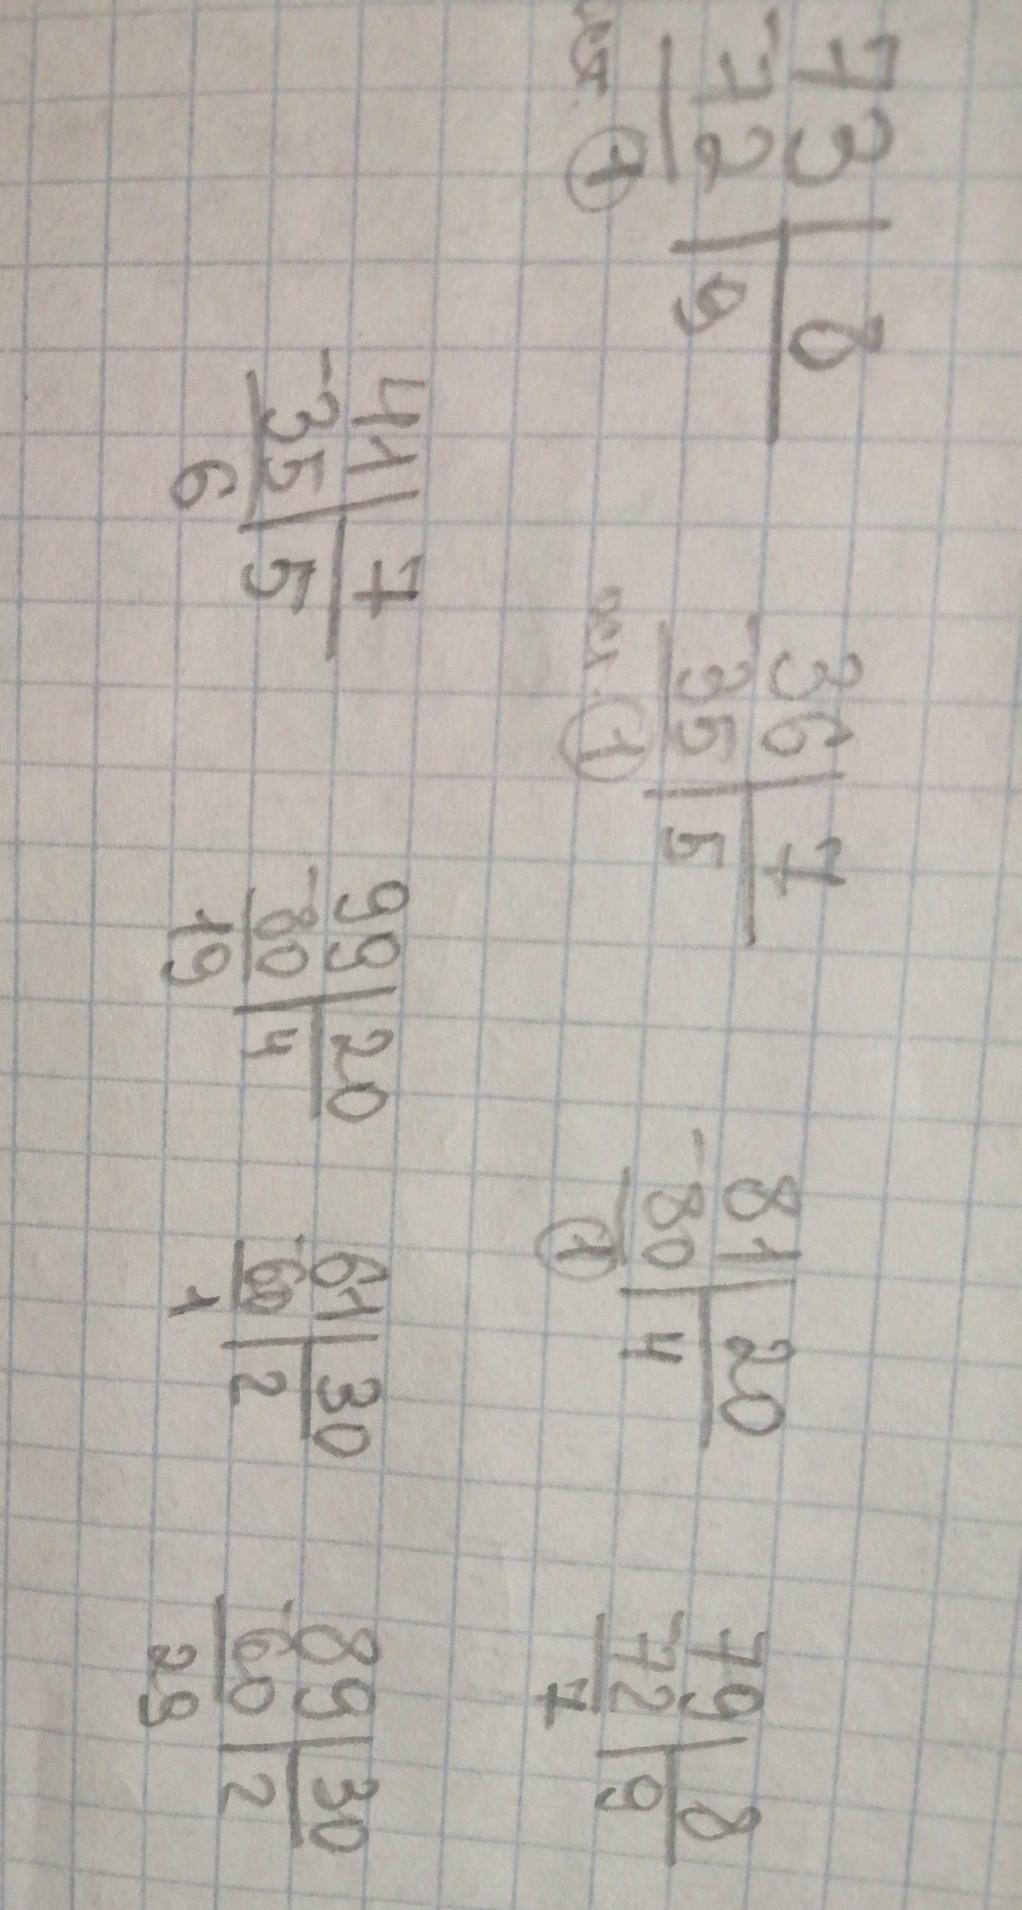 73 8 36 7 81 20 79 8
-72 9 -35 5 -80 4 -72 9
ост. 1 ост. 1 1 7
41 7 99 20 61 30 89 30
-35 5 -80 4 -60 2 -60 2
6 19 1 29